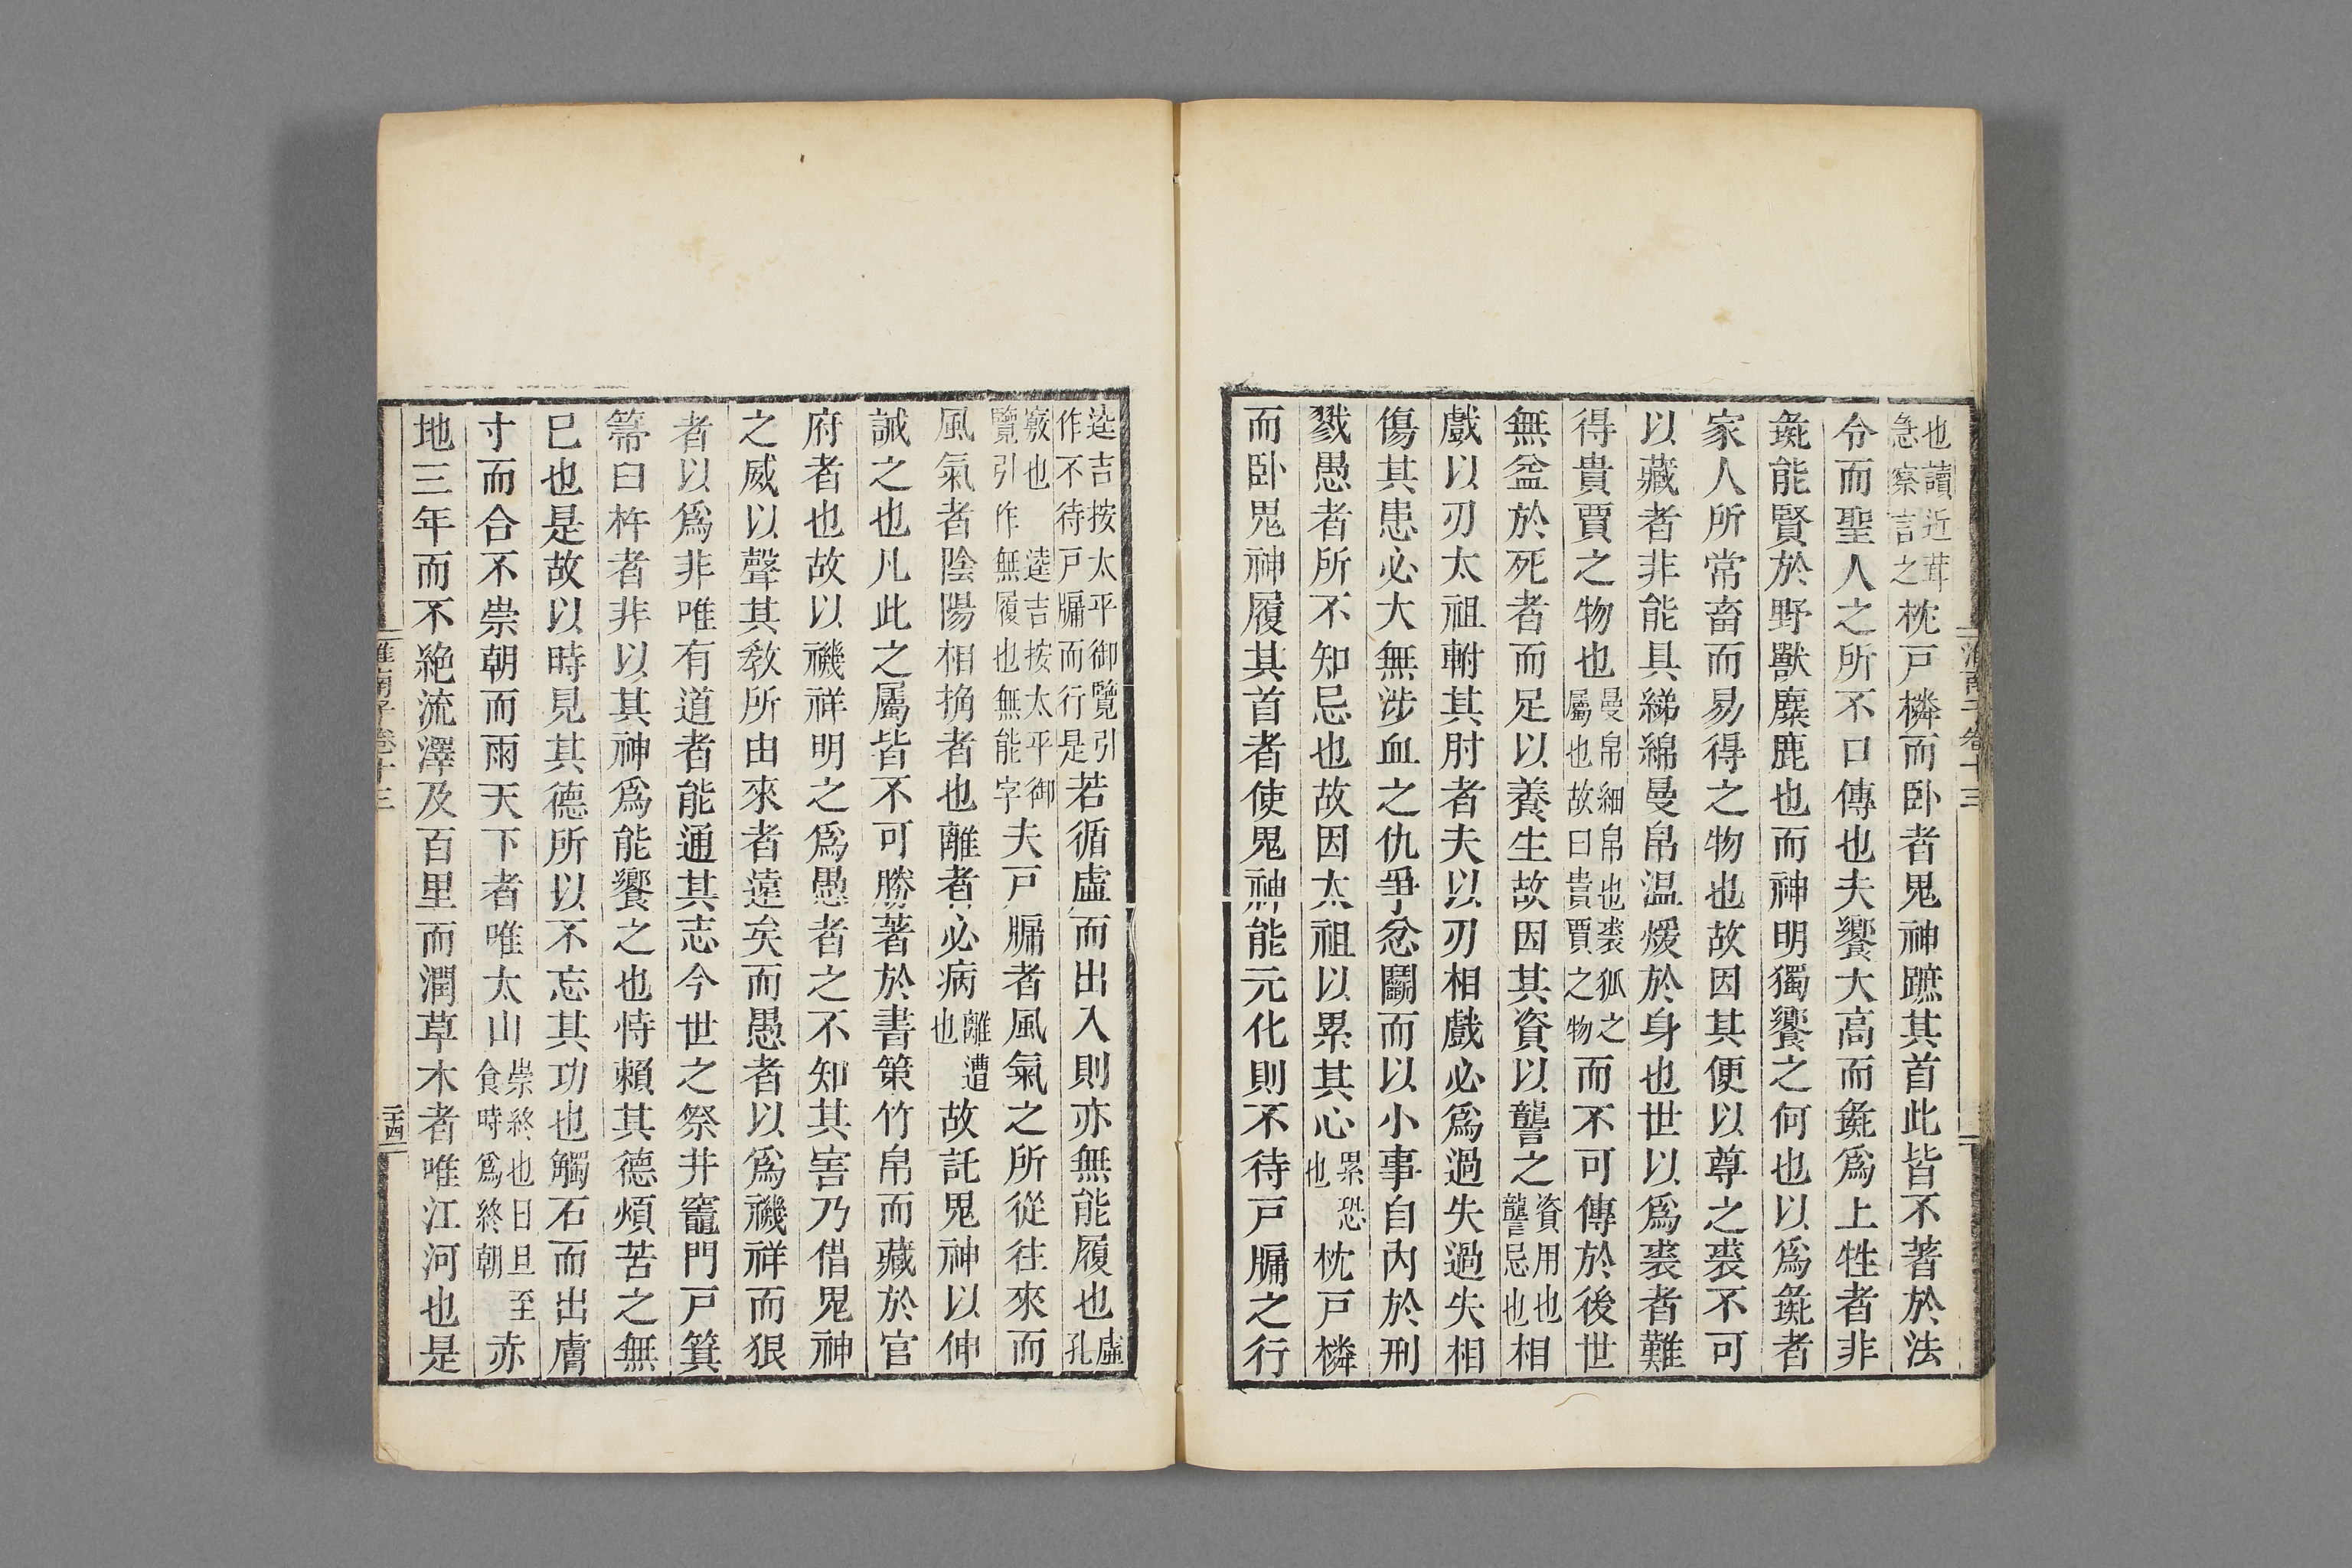 也讀近茸急察言之枕戸橉而卧者鬼神蹠其首此皆不著於法
令而聖人之所不口傳也夫饗大高而彘爲上牲者非
彘能賢於野獸麋鹿也而神明獨饗之何也以爲彘者
家人所常畜而易得之物也故因其便以尊之裘不可
以藏者非能具綈綿曼帛温煖於身也世以爲裘者難
得貴賈之物也曼帛細帛也裘狐之屬也故曰貴賈之物而不可傳於後世
無益於死者而足以養生故因其資以讋之資用也讋忌也相
戲以刃太祖軵其肘者夫以刃相戲必爲過失過失相
傷其患必大無涉血之仇爭忿鬭而以小事自内於刑
戮愚者所不知忌也故因太祖以累其心累恐也枕戸橉
而卧鬼神履其首者使鬼神能元化則不待戸牖之行
淮南子卷十三
逵吉按太平御覽引作不待戸牖而行是若循虛而出入則亦無能履也虛孔
竅也 逵吉按太平御覽引作無履也無能字夫戸牖者風氣之所從往來而
風氣者陰陽相捔者也離者必病離遭也故託鬼神以伸
誡之也凡此之屬皆不可勝著於書策竹帛而藏於官
府者也故以禨祥明之爲愚者之不知其害乃借鬼神
之威以聲其敎所由來者遠矣而愚者以爲禨祥而狠
者以爲非唯有道者能通其志今世之祭井竈門戸箕
箒臼杵者非以其神爲能饗之也恃賴其德煩苦之無
已也是故以時見其德所以不忘其功也觸石而出膚
寸而合不崇朝而雨天下者唯太山崇終也日旦至食時爲終朝赤
地三年而不絶流澤及百里而潤草木者唯江河也是
淮南子卷十三
二十四